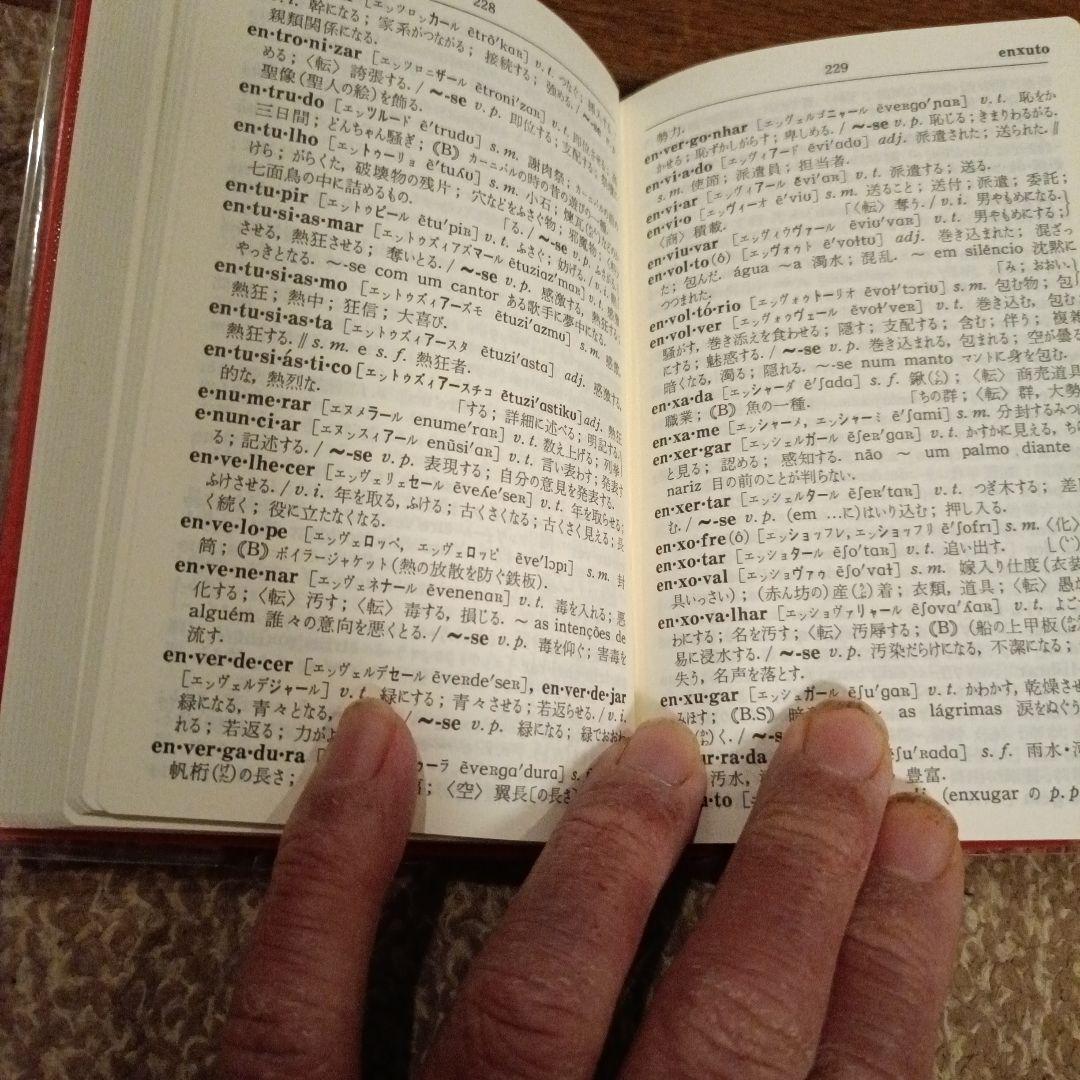 228
v.t. 幹になる; 家系がつながる; 接続する;
親類関係になる.
en·tro·ni·zar [エッツロニザール ẽtroni'zɑʀ] v.t. 即位させる;
める; 〈転〉 誇張する. / ~-se v.p. 即位する; 支配する
聖像(聖人の絵)を飾る.
en·tru·do [エッツルード ẽ'trudu] s.m. 謝肉祭; カーニバルの
三日間; どんちゃん騒ぎ; 《B》 カーニバルの時の昔の遊びの一種.
en·tu·lho [エントゥーリョ ẽ'tuʎu] s.m. 小石; 煉瓦
けら; がらくた, 破壊物の残片; 穴などをふさぐ物; 邪魔物;
七面鳥の中に詰めるもの.
en·tu·pir [エントゥピール ẽtu'piʀ] v.t. ふさぐ; 妨げる. 「る. / ~-se v.p.
en·tu·si·as·mar [エントゥズィアズマール ẽtuziɑz'mɑʀ] v.t. 感激
させる, 熱狂させる; 奪いとる. / ~-se v.p. 感激する, 熱狂する,
やっきとなる. ~-se com um cantor ある歌手に夢中になる.
en·tu·si·as·mo [エントゥズィアーズモ ẽtuzi'ɑzmu] s.m. 感激,
熱狂; 熱中; 狂信; 大喜び.
en·tu·si·as·ta [エントゥズィアースタ ẽtuzi'ɑsta] adj. 感激する,
熱狂する. // s.m. e s.f. 熱狂者.
en·tu·si·ás·ti·co [エントゥズィアースチコ ẽtuzi'ɑstiku] adj. 熱狂
的な, 熱烈な. 「する; 詳細に述べる; 明記する
e·nu·me·rar [エヌメラール enume'rɑʀ] v.t. 数え上げる; 列挙
e·nun·ci·ar [エヌンスィアール enũsi'ɑʀ] v.t. 言い表わす; 発表す
る; 記述する. / ~-se v.p. 表現する; 自分の意見を発表する.
en·ve·lhe·cer [エッヴェリェセール ẽveʎe'seʀ] v.t. 年を取らせる;
ふけさせる. / v.i. 年を取る, ふける; 古くさくなる; 古くさく見える; 長
く続く; 役に立たなくなる.
en·ve·lo·pe [エッヴェロッペ, エッヴェロッピ ẽve'lɔpi] s.m. 封
筒; 《B》 ボイラージャケット(熱の放散を防ぐ鉄板).
en·ve·ne·nar [エッヴェネナール ẽvenenɑʀ] v.t. 毒を入れる; 悪
化する; 〈転〉 汚す; 〈転〉 毒する, 損じる. ~ as intenções de
alguém 誰々の意向を悪くとる. / ~-se v.p. 毒を仰ぐ; 害毒を
流す.
en·ver·de·cer [エッヴェルデセール ẽveʀde'seʀ], en·ver·de·jar
[エッヴェルデジャール] v.t. 緑にする; 青々させる; 若返らせる. / v.i.
緑になる, 青々となる, / ~-se v.p. 緑になる; 緑でおおわ
れる; 若返る; 力が
en·ver·ga·du·ra [ ーラ ẽveʀgɑ'durɑ] s.f.
帆桁(げた)の長さ; ; 〈空〉 翼長[の長さ
229
enxuto
勢力.
en·ver·go·nhar [エッヴェルゴニャール ẽveʀgo'ɲɑʀ] v.t. 恥をか
かせる; 恥ずかしがらす; 卑しめる. / ~-se v.p. 恥じる; きまりわるがる.
en·vi·a·do [エッヴィアード ẽvi'ɑdu] adj. 派遣された; 送られた. //
s.m. 使節; 派遣員; 担当者.
en·vi·ar [エッヴィアール ẽvi'ɑʀ] v.t. 派遣する; 送る.
en·vi·o [エッヴィーオ ẽ'viu] s.m. 送ること; 送付; 派遣; 委託;
〈商〉 積載. 「〈転〉 奪う. / v.i. 男やもめになる.
en·viu·var [エッヴィウヴァール ẽviu'vɑʀ] v.t. 男やもめにする;
en·vol·to(ô) [エッヴォゥト ẽ'voɫtu] adj. 巻き込まれた; 混ざっ
た; 包んだ. água ~a 濁水; 混乱. ~ em silêncio 沈黙に
つつまれた. 「み; おおい.
en·vol·tó·rio [エッヴォゥトーリオ ẽvoɫ'tɔriu] s.m. 包む物; 包
en·vol·ver [エッヴォゥヴェール ẽvoɫ'veʀ] v.t. 巻き込む, 包む;
騒がす, 巻き添えを食わせる; 隠す; 支配する; 含む; 伴う; 複雑
にする; 魅惑する. / ~-se v.p. 巻き込まれ, 包まれる; 空が曇る
暗くなる, 濁る; 隠れる. ~-se num manto マントに身を包む.
en·xa·da [エッシャーダ ẽ'ʃɑdɑ] s.f. 鍬(くわ); 〈転〉 商売道具
職業; 《B》 魚の一種. 「ちの群; 〈転〉 群, 大
en·xa·me [エッシャーメ, エッシャーミ ẽ'ʃɑmi] s.m. 分封するみつ
en·xer·gar [エッシェルガール ẽʃeʀ'gɑʀ] v.t. かすかに見える, ち
と見る; 認める; 感知する. não ~ um palmo diante
nariz 目の前のことが判らない.
en·xer·tar [エッシェルタール ẽʃeʀ'tɑʀ] v.t. つぎ木する; 差
む. / ~-se v.p. (em ...に)はいり込む; 押し入る.
en·xo·fre(ô) [エッショッフレ, エッショッフリ ẽ'ʃofri] s.m. 〈化〉
en·xo·tar [エッショタール ẽʃo'tɑʀ] v.t. 追い出す.
en·xo·val [エッショヴァゥ ẽʃo'vɑɫ] s.m. 嫁入り仕度(衣装
具いっさい); (赤ん坊の)産(うぶ)着; 衣類, 道具; 〈転〉 愚か
en·xo·va·lhar [エッショヴァリャール ẽʃovɑ'ʎɑʀ] v.t. よご
わにする; 名を汚す; 〈転〉 汚辱する; 《B》 (船の上甲板
易に浸水する. / ~-se v.p. 汚染だらけになる, 不潔になる;
失う, 名声を落とす.
en·xu·gar [エッシュガール ẽʃu'gɑʀ] v.t. かわかす, 乾燥させ
みほす; 《B.S》 ~ as lágrimas 涙をぬぐう
く. / ~-se
ur·ra·da ẽʃu'ʀɑdɑ] s.f. 雨水・
汚水, 豊富.
to (enxugar の p.p.